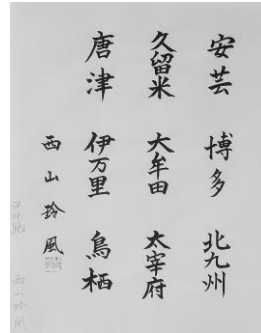 安芸 博多 北九州
久留米 大牟田 太宰府
唐津 伊万里 鳥栖
西山玲風
西山玲風